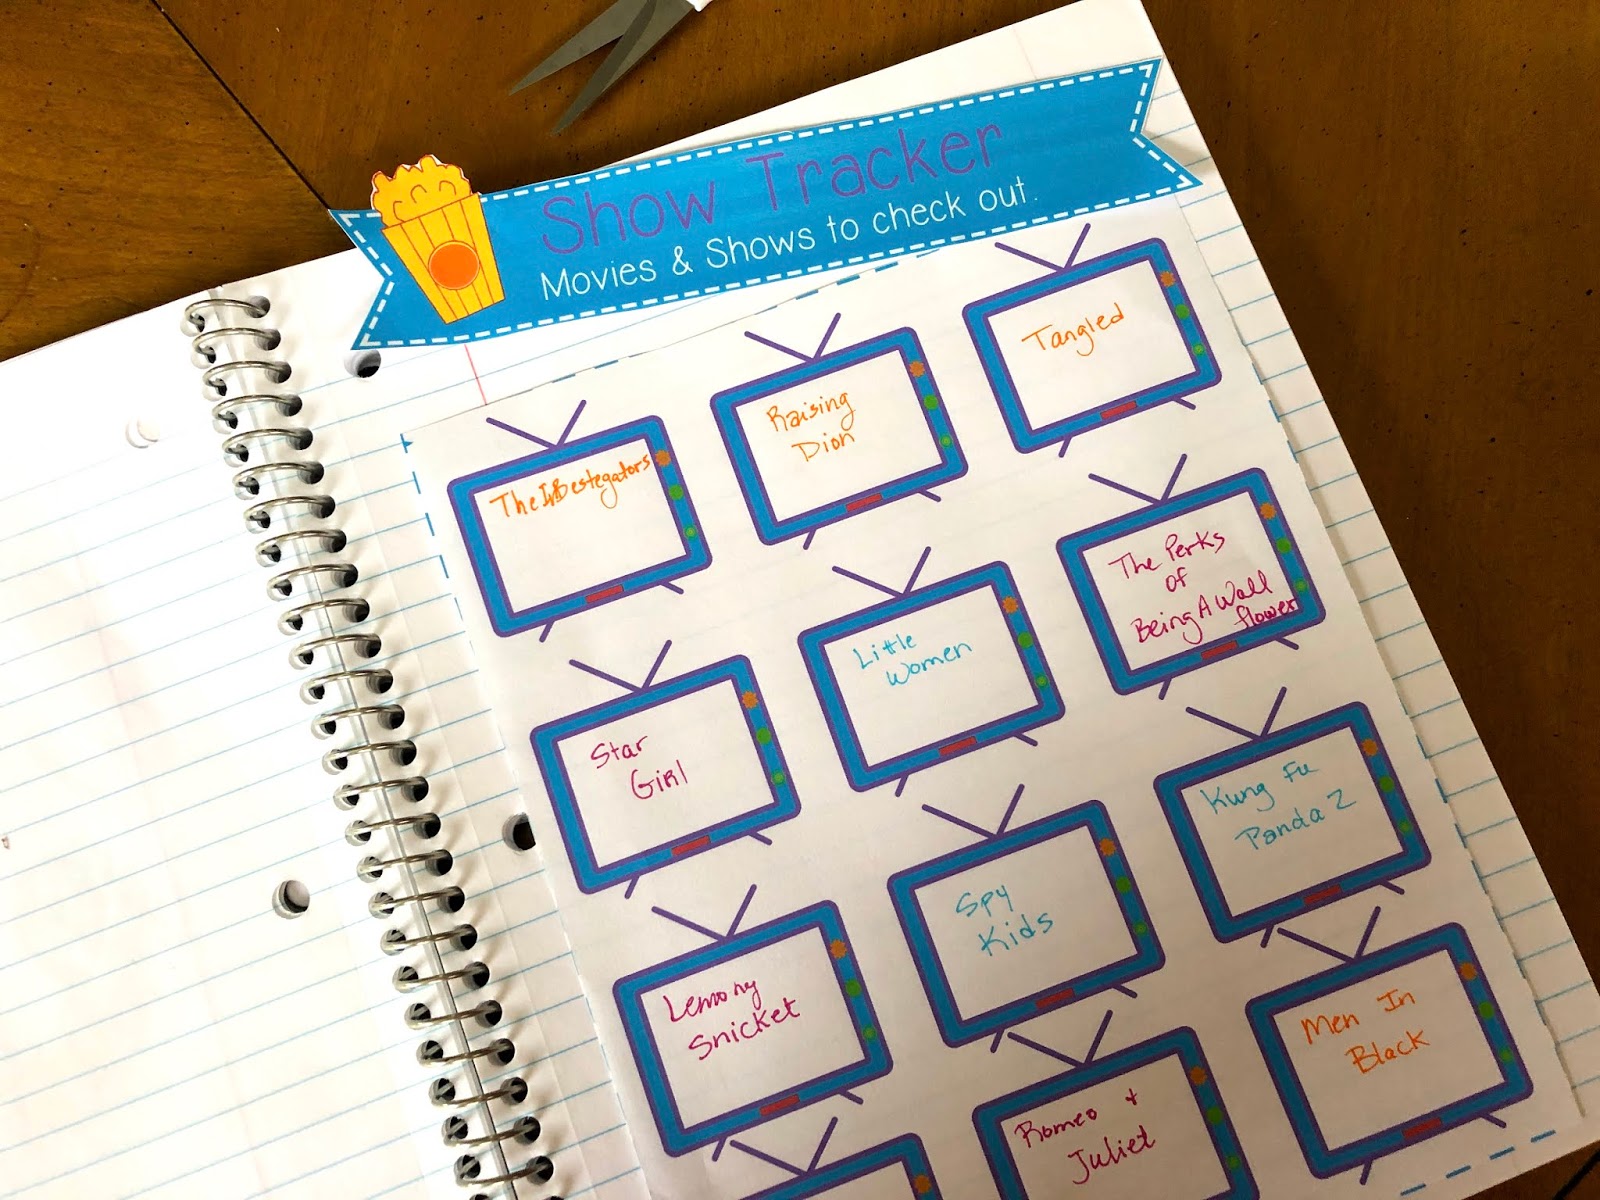 Show Tracker
Movies & Shows to check out.
The InBestegators
Raising
Dion
Tangled
Star
Girl
Little
Women
The Perks
of
Being A Wall
flower
Lemony
Snicket
Spy
Kids
Kung Fu
Panda 2
Romeo +
Juliet
Men In
Black